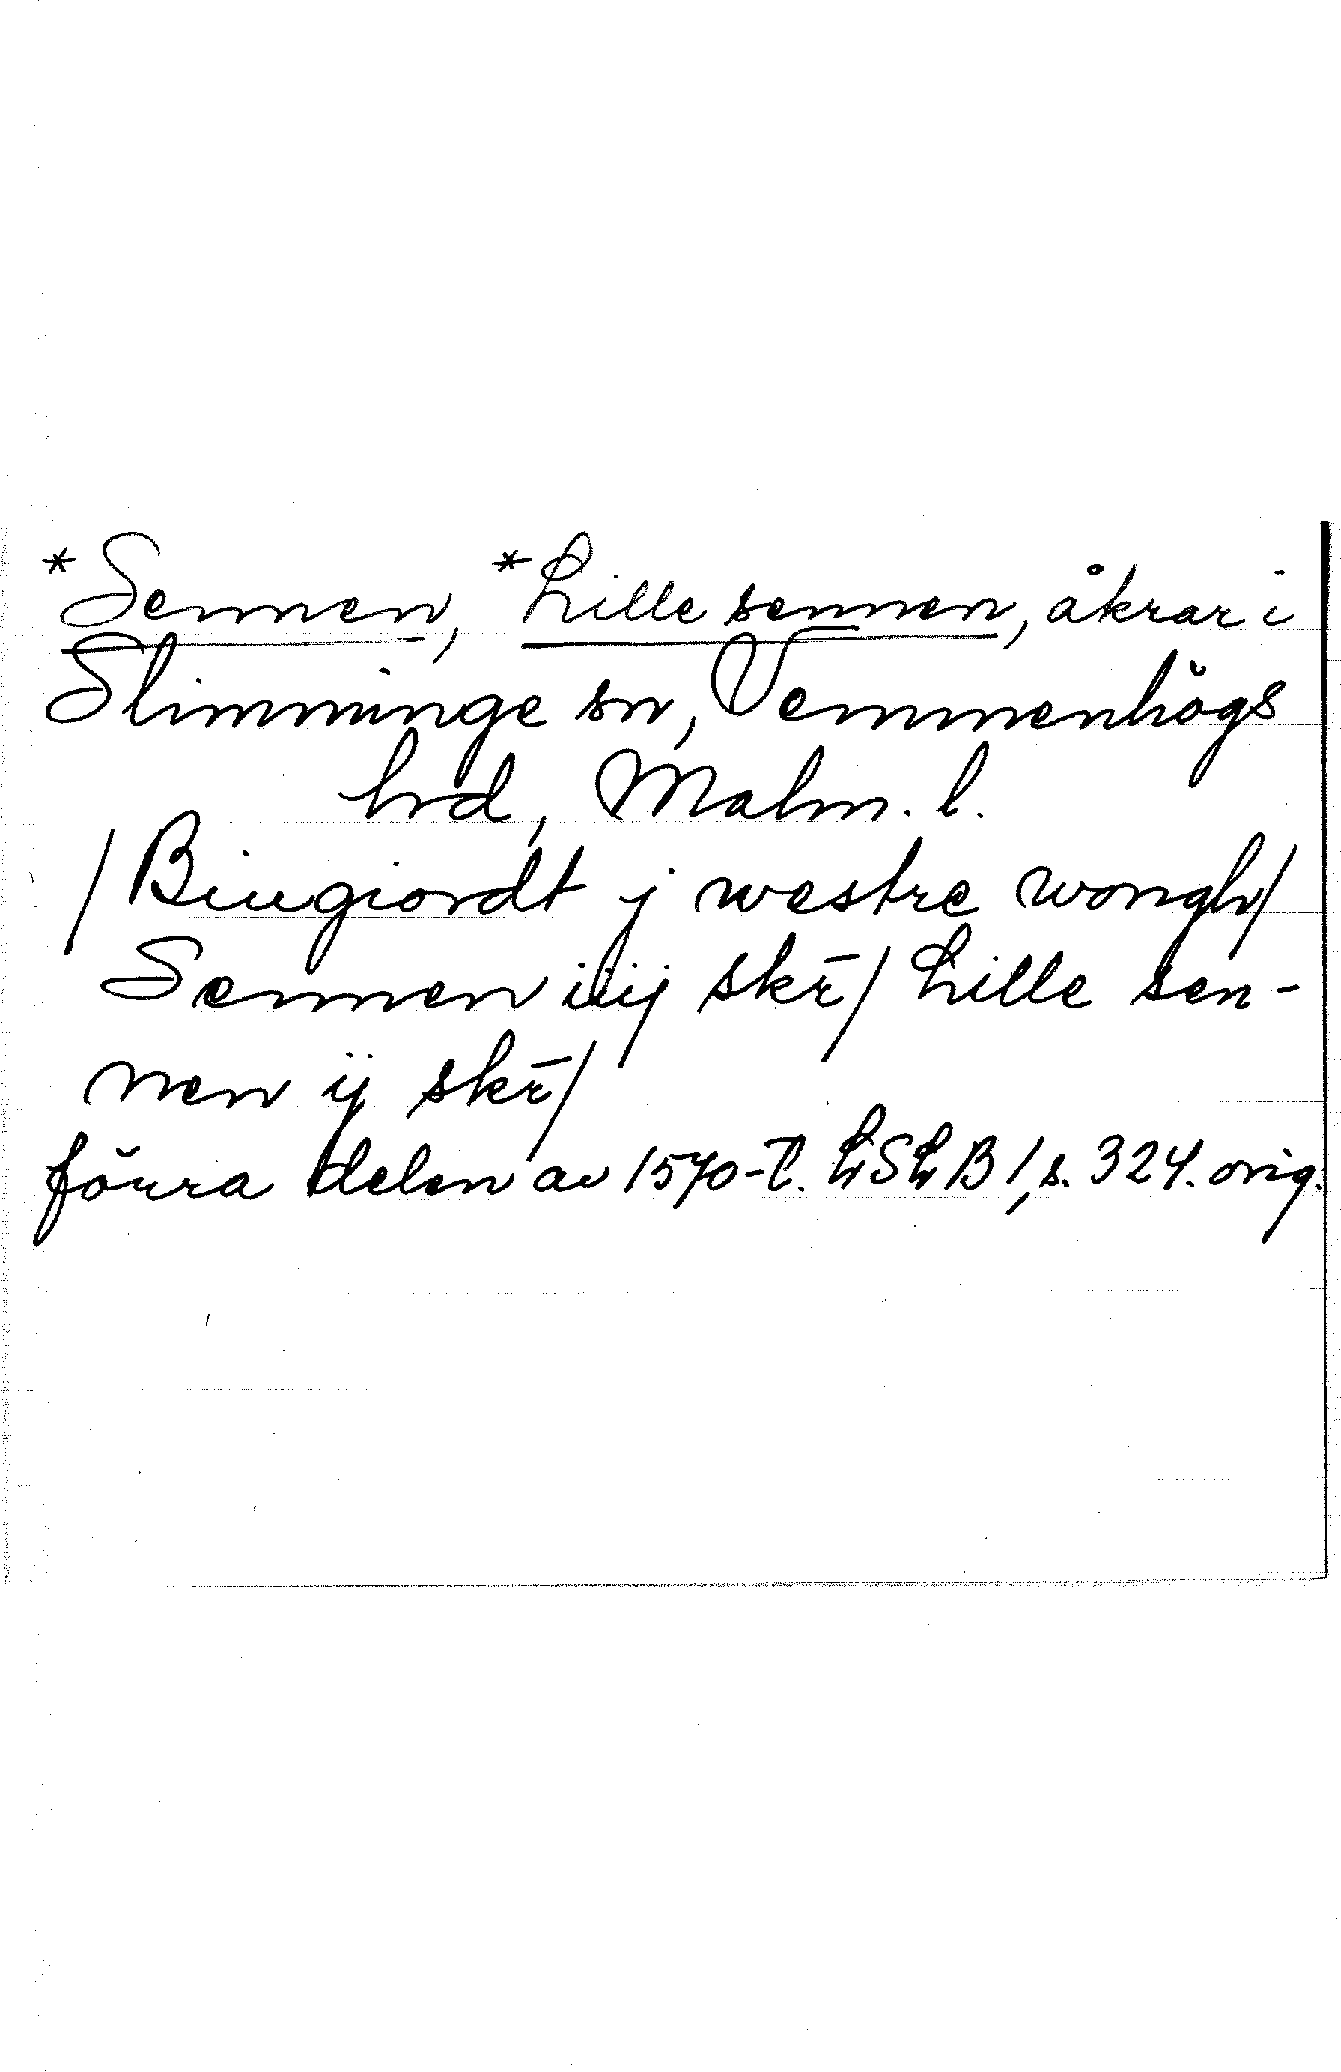 *Sennen, *Lille sennen, åkrar i
Slimminge sn, Vemmenhögs
hrd, Malm. l.
/Biugiordt j westre wongh/
Sennen iiij skr̄/ Lille sen-
nen ij skr̄/
förra delen av 1570-t. LSLB 1, s. 324. orig.